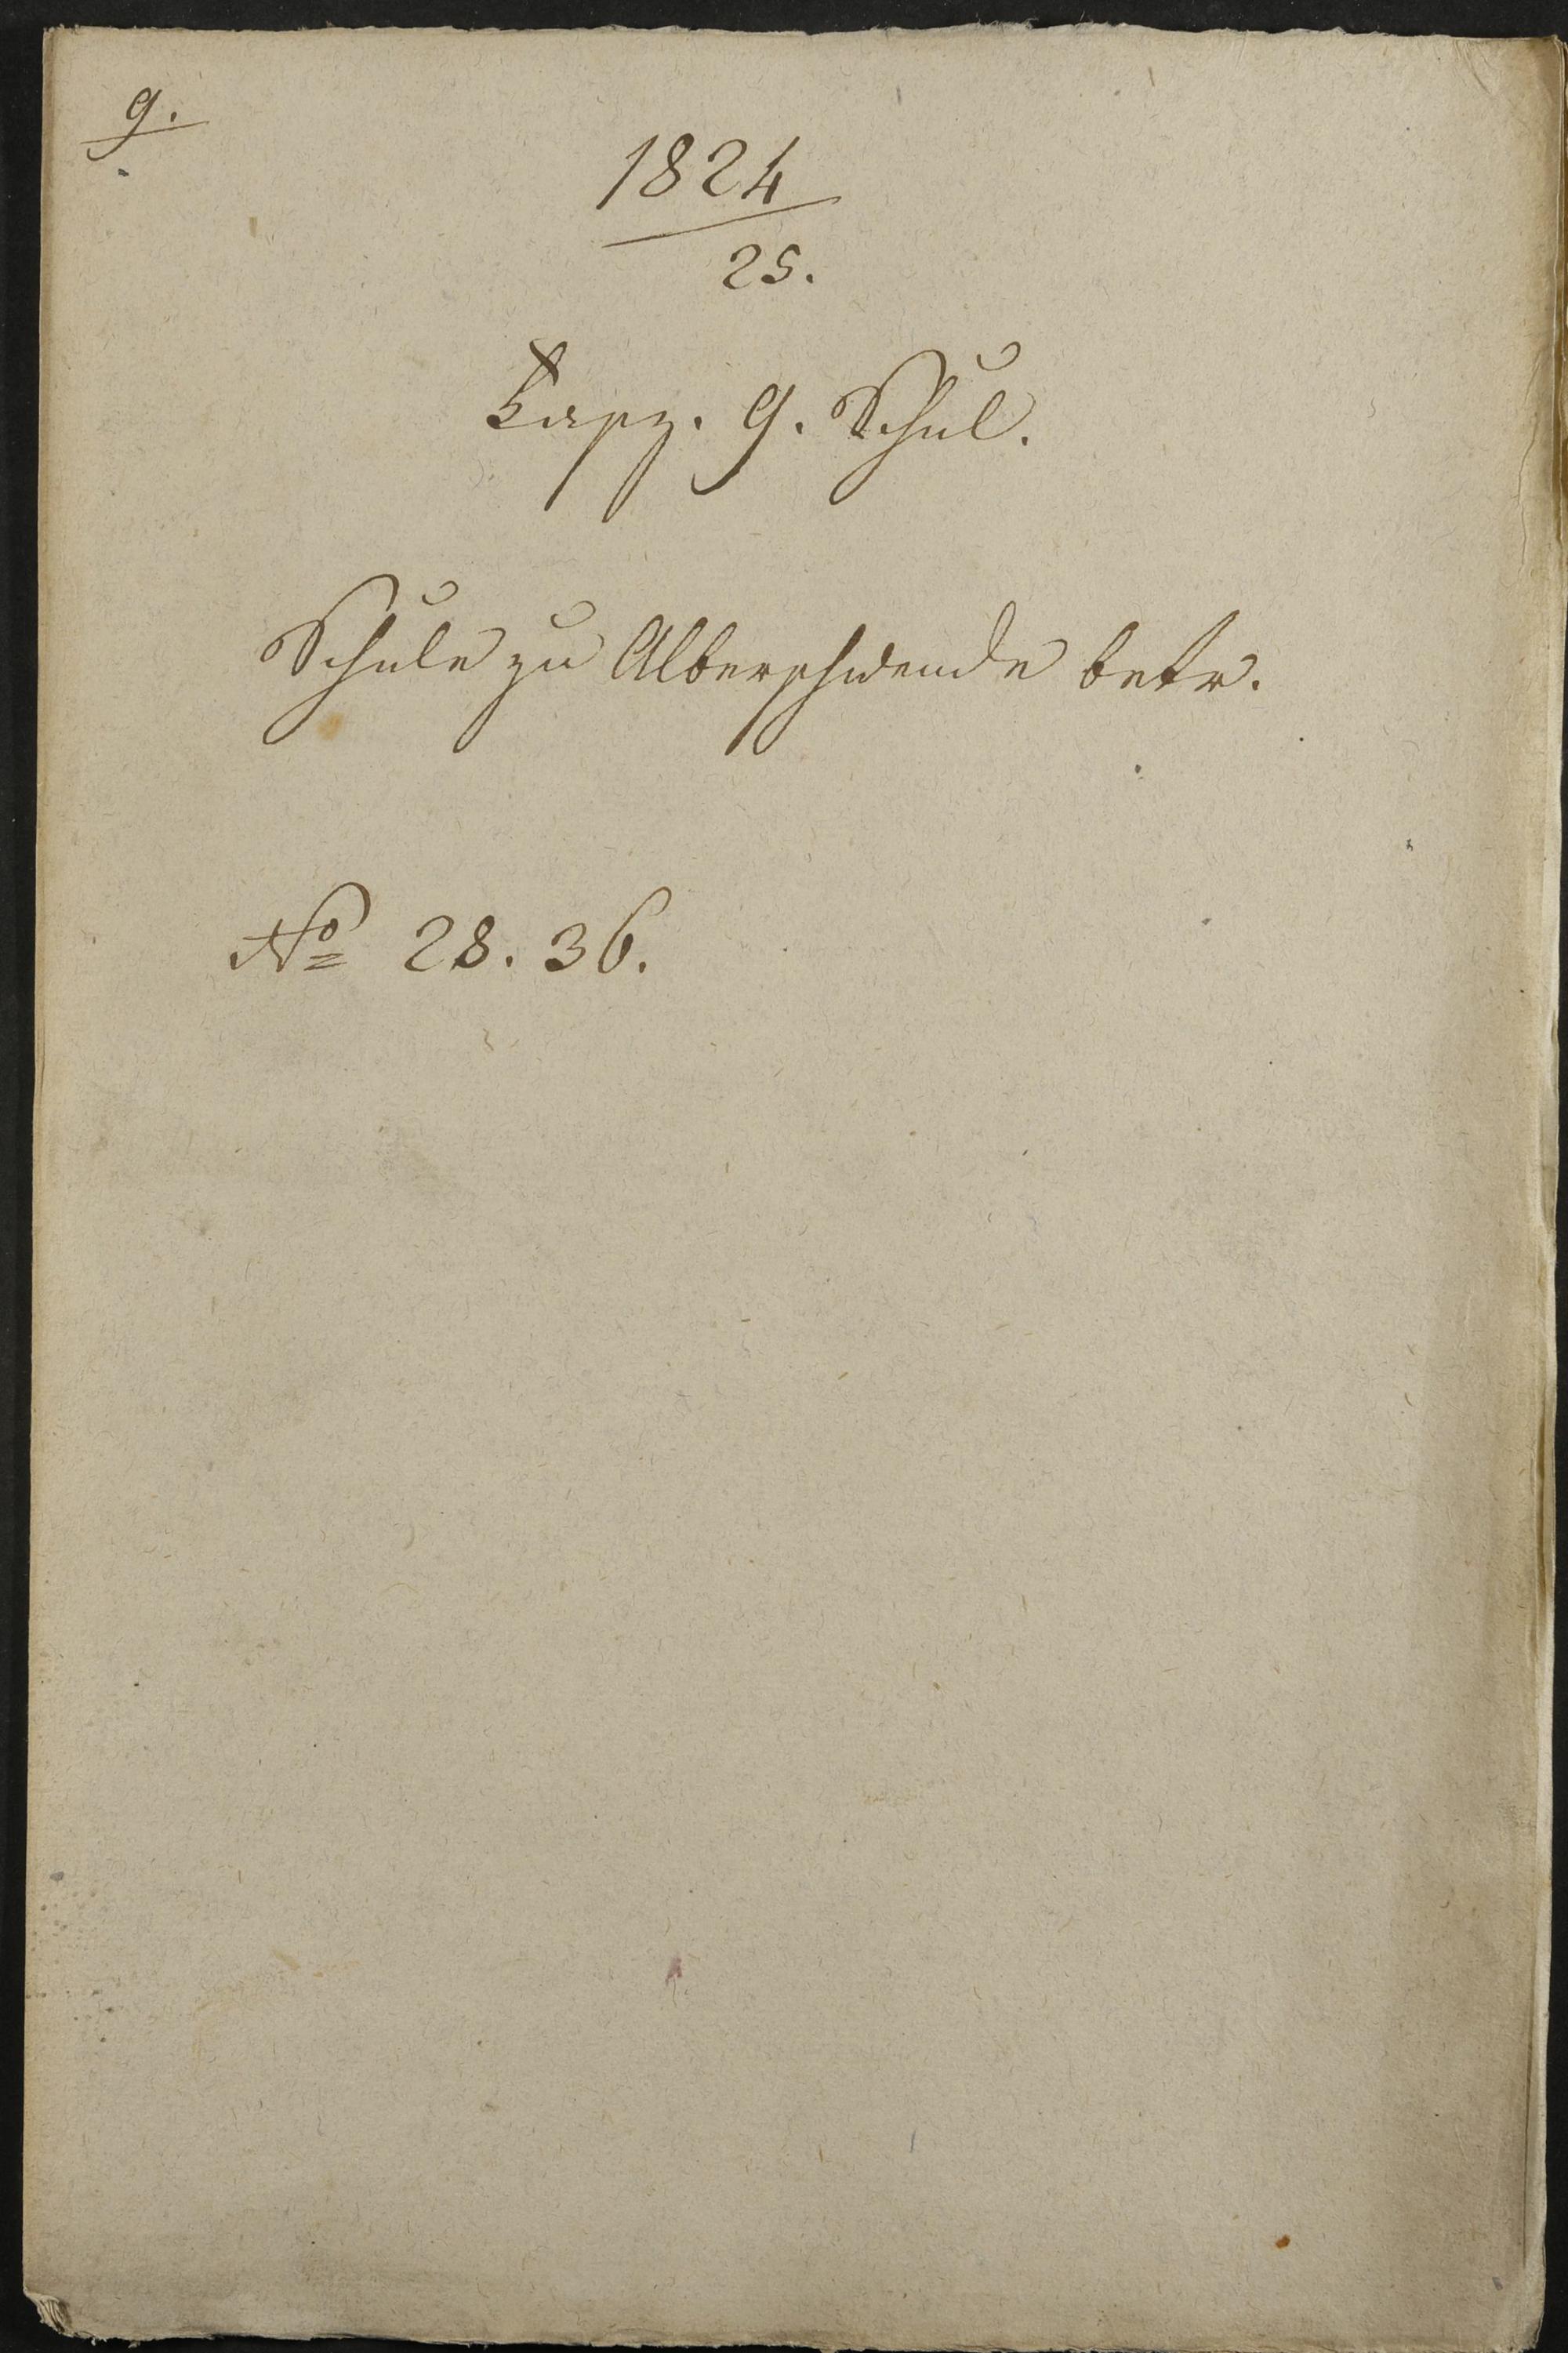 9.
1824
25.
Fasz. 9. Schul.
Schule zu Alberschwende betr.
No 28. 36.